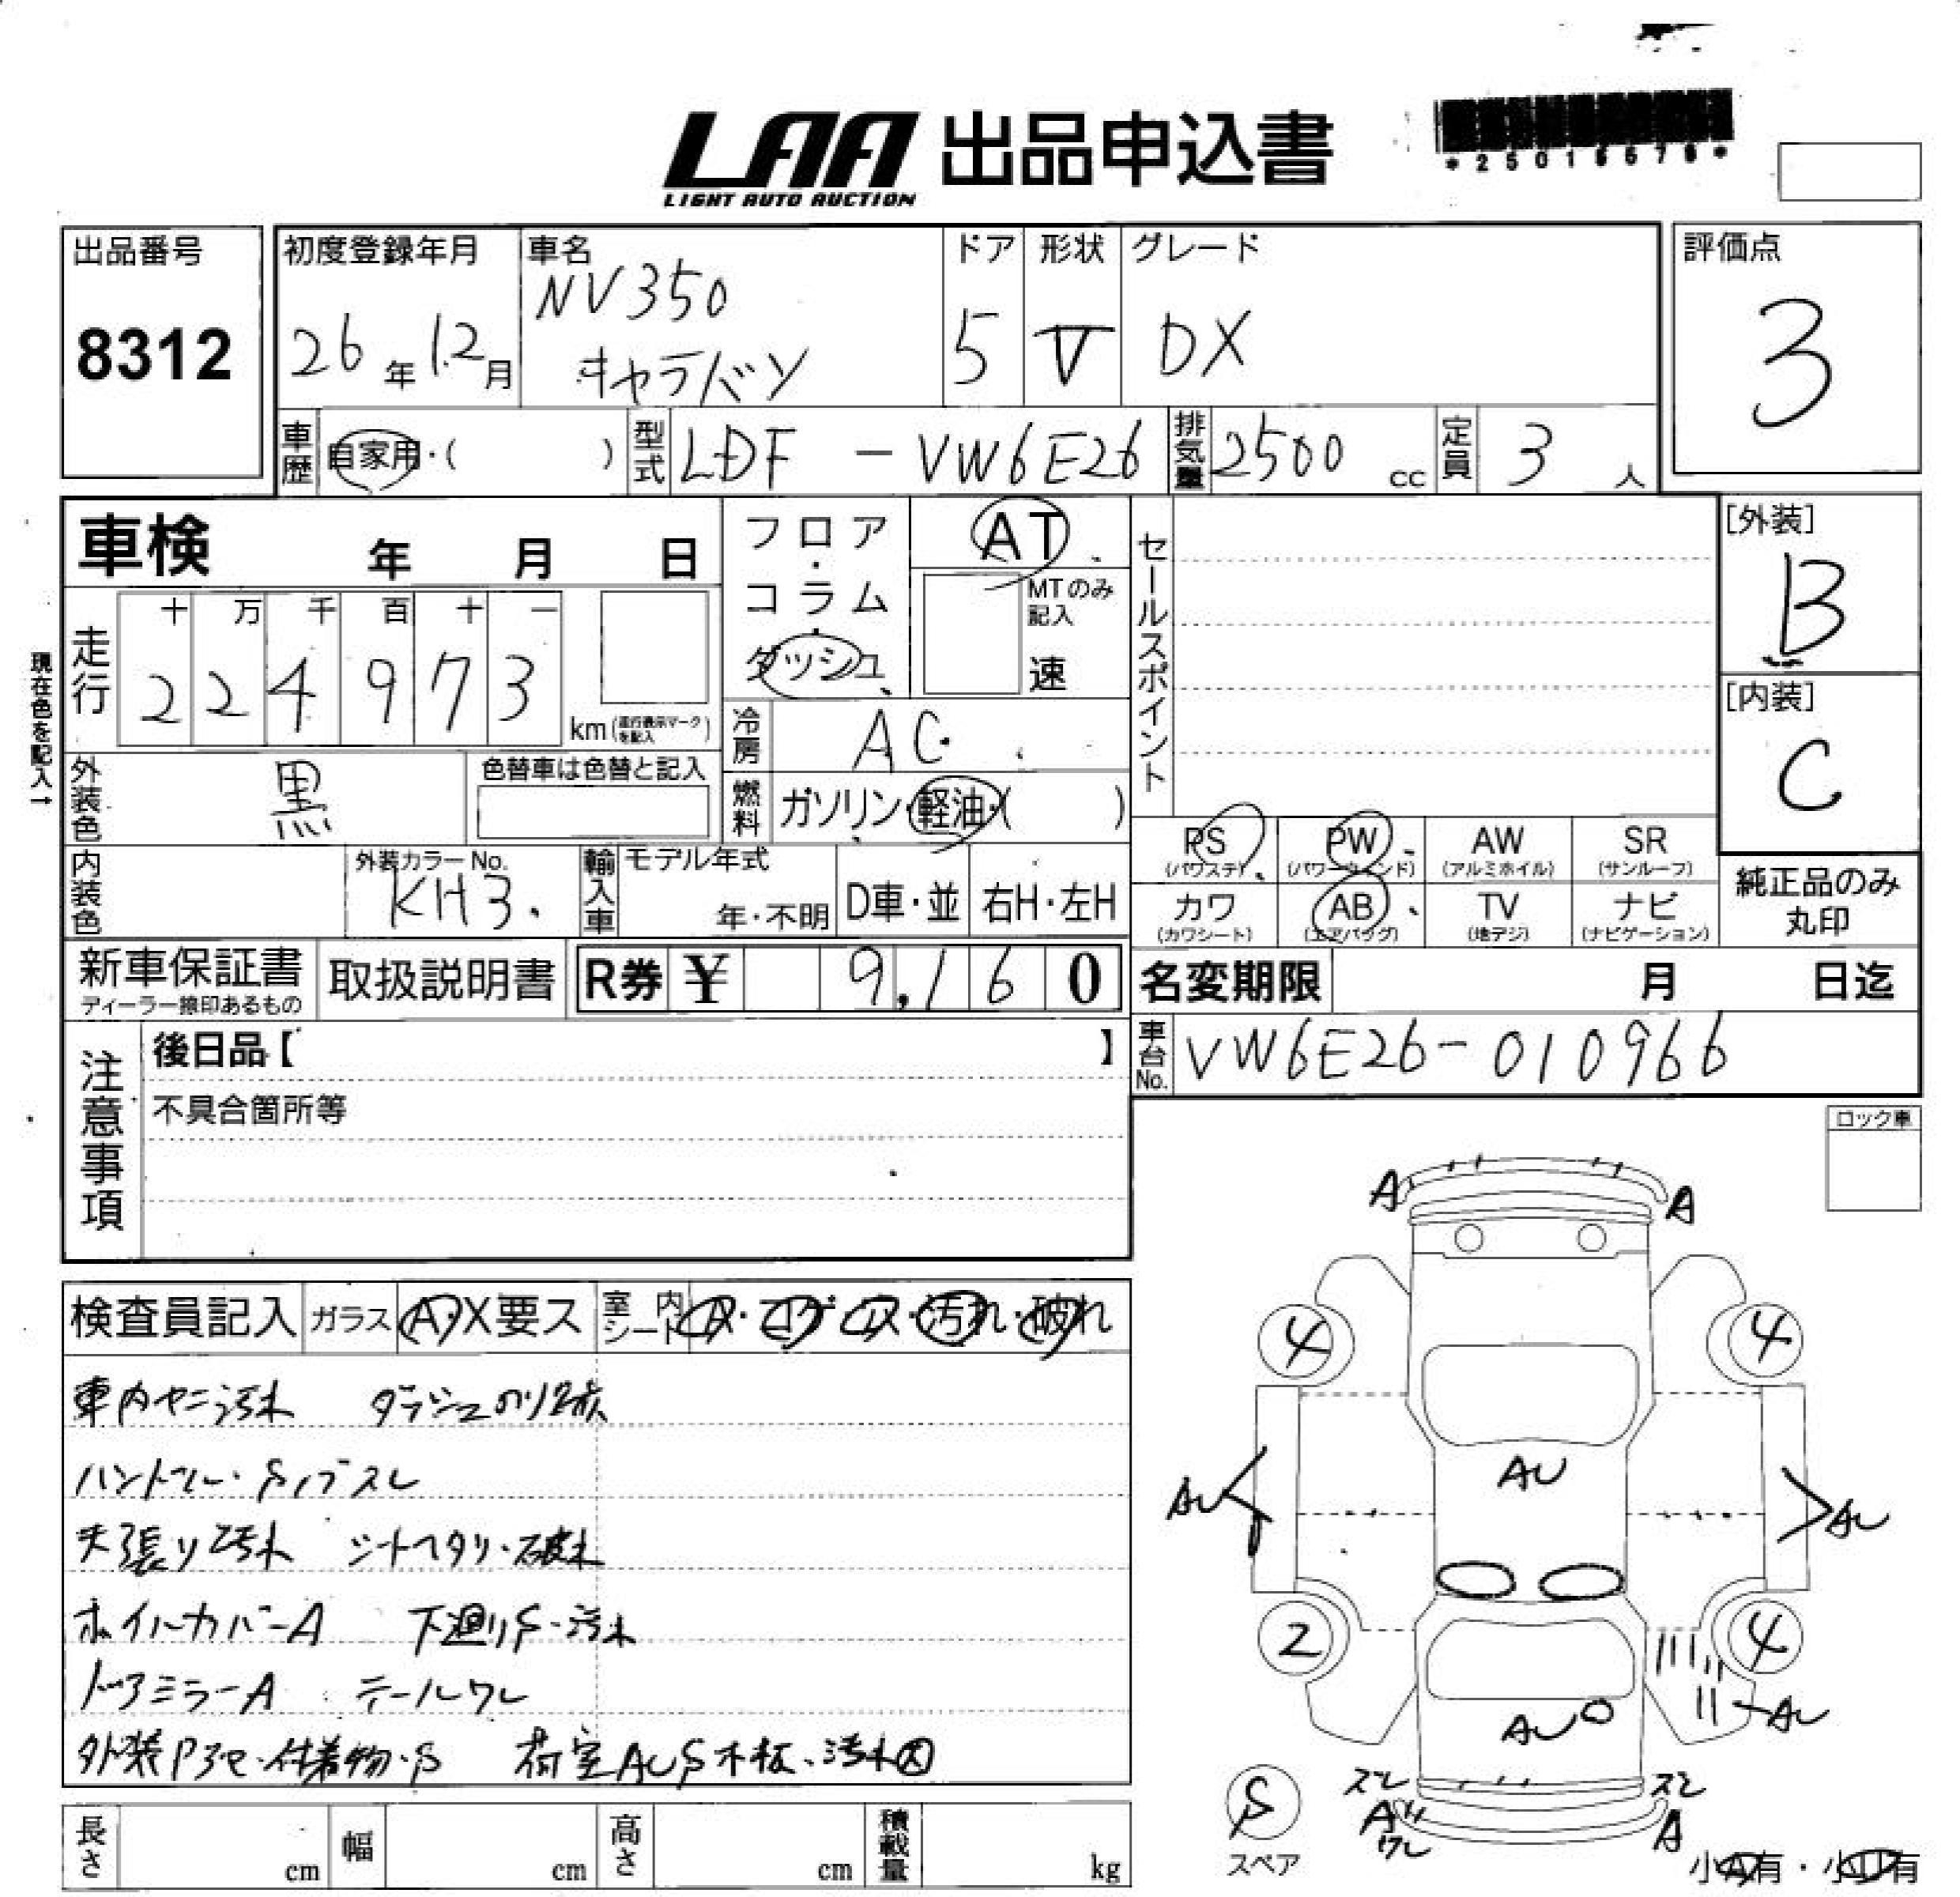 LAA 出品申込書
LIGHT AUTO AUCTION
出品番号
8312
初度登録年月
26年12月
車名
NV350
キャラバン
ドア
5
形状
V
グレード
DX
評価点
3
車歴 自家用・( )
型式 LDF - VW6E26
排気量 2500 cc
定員 3 人
車検 年 月 日
フロア・コラム・ダッシュ
AT
MTのみ記入
速
セールスポイント
[外装]
B
[内装]
C
現在色を記入→
走行
十 万 千 百 十 一
2 2 4 9 7 3 km (走行表示マークを記入)
冷房 AC
外装色 黒
色替車は色替と記入
燃料 ガソリン・軽油・( )
PS (パワステ)
PW (パワーウィンド)
AW (アルミホイル)
SR (サンルーフ)
カワ (カワシート)
AB (エアバッグ)
TV (地デジ)
ナビ (ナビゲーション)
純正品のみ丸印
内装色
外装カラーNo. KH3
輸入車
モデル年式
年・不明
D車・並
右H・左H
新車保証書
ディーラー捺印あるもの
取扱説明書
R券 ¥ 9,160
名変期限 月 日迄
車台No. VW6E26-010966
注意事項
後日品【 】
不具合箇所等
ロック車
検査員記入 ガラス A・X要ス 室内シート A・コゲ・穴・汚れ・破れ
車内ヤニ汚れ ダッシュのり跡
ハンドル・Sノブスレ
天張り汚れ シートヘタリ・破れ
ホイルカバーA 下廻りS・汚れ
ドアミラーA テールワレ
荷室AUS木板・汚れ大
A A
4 4
AU
AU AU
2 4
AU
AU
ズレ ズレ
A A
ワレ
S
スペア
小A有・小U有
長さ cm 幅 cm 高さ cm 積載量 kg